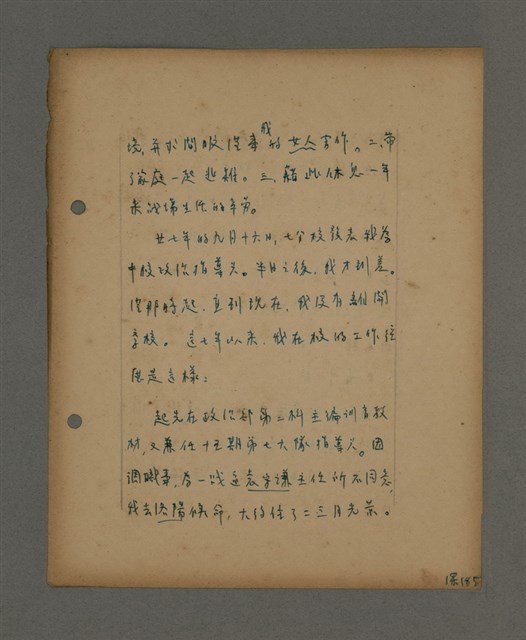 境，并於閒暇從事我的女人寫作。二、帶
了家庭一起避難。三、藉此休息一年
來戎馬生活的辛勞。
廿七年的九月十六日，七分校發表我為
中校政治指導員。半月之後，我才到差。
從那時起，直到現在，我沒有離開
學校。這七年以來，我在校的工作經
過是這樣：
起先在政治部第二科主編訓育教
材，又兼任十五期第七大隊指導員。因
調職事，為一戰區袁守謙主任所不同意，
我去洛陽候命，大約住了二三月光景。